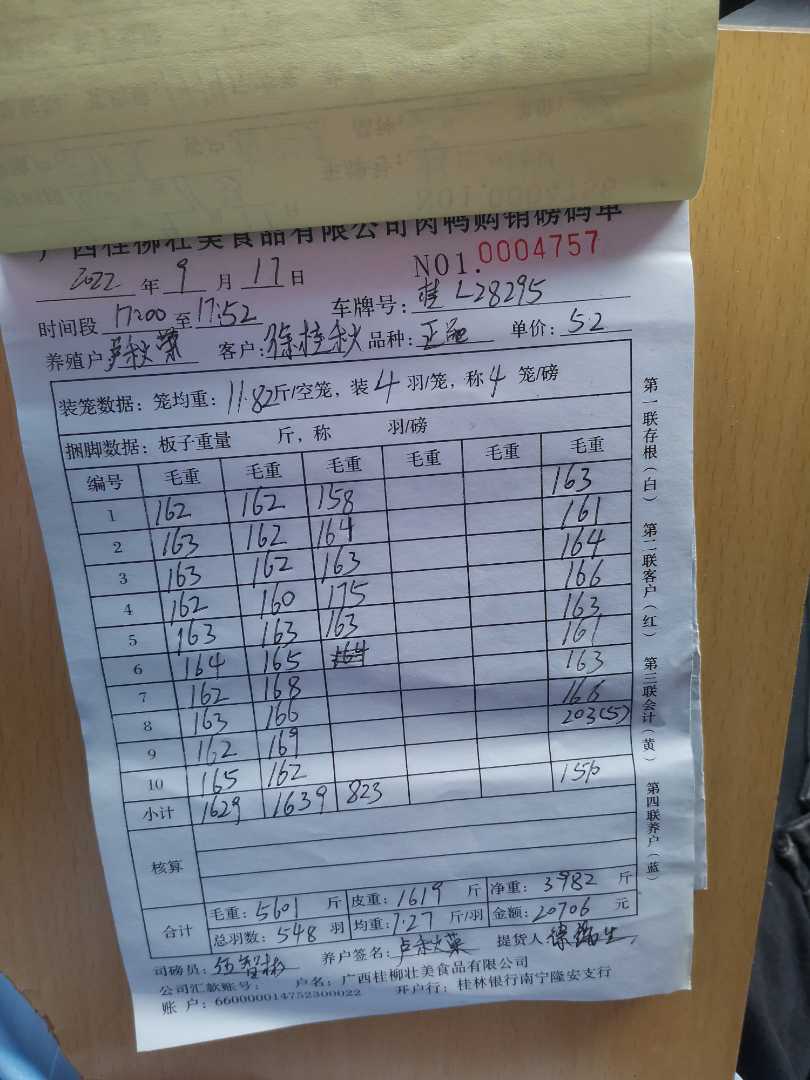 广西桂柳壮美食品有限公司肉鸭购销磅码单
2022 年 9 月 17 日 NO1.0004757
时间段 17:00 至 17:52 车牌号: 桂L28295
养殖户 卢秋菜 客户: 徐桂秋 品种: 正 单价: 5.2
装笼数据: 笼均重: 11.82 斤/空笼, 装 4 羽/笼, 称 4 笼/磅
捆脚数据: 板子重量 斤, 称 羽/磅
编号 毛重 毛重 毛重 毛重 毛重 毛重
1 162 162 158 163
2 163 162 164 161
3 163 162 163 164
4 162 160 175 166
5 163 163 163 163
6 164 165 164 161
7 162 168 163
8 163 166 166
9 162 169 203(5)
10 165 162
小计 1629 1639 823 1510
核算
合计 毛重: 5601 斤 皮重: 1619 斤 净重: 3982 斤
总羽数: 548 羽 均重: 7.27 斤/羽 金额: 20706 元
司磅员: 养户签名: 卢秋菜 提货人 徐
公司汇款账号: 户名: 广西桂柳壮美食品有限公司
账 户: 660000014752300022 开户行: 桂林银行南宁隆安支行
第一联存根(白) 第二联客户(红) 第三联会计(黄) 第四联养户(蓝)